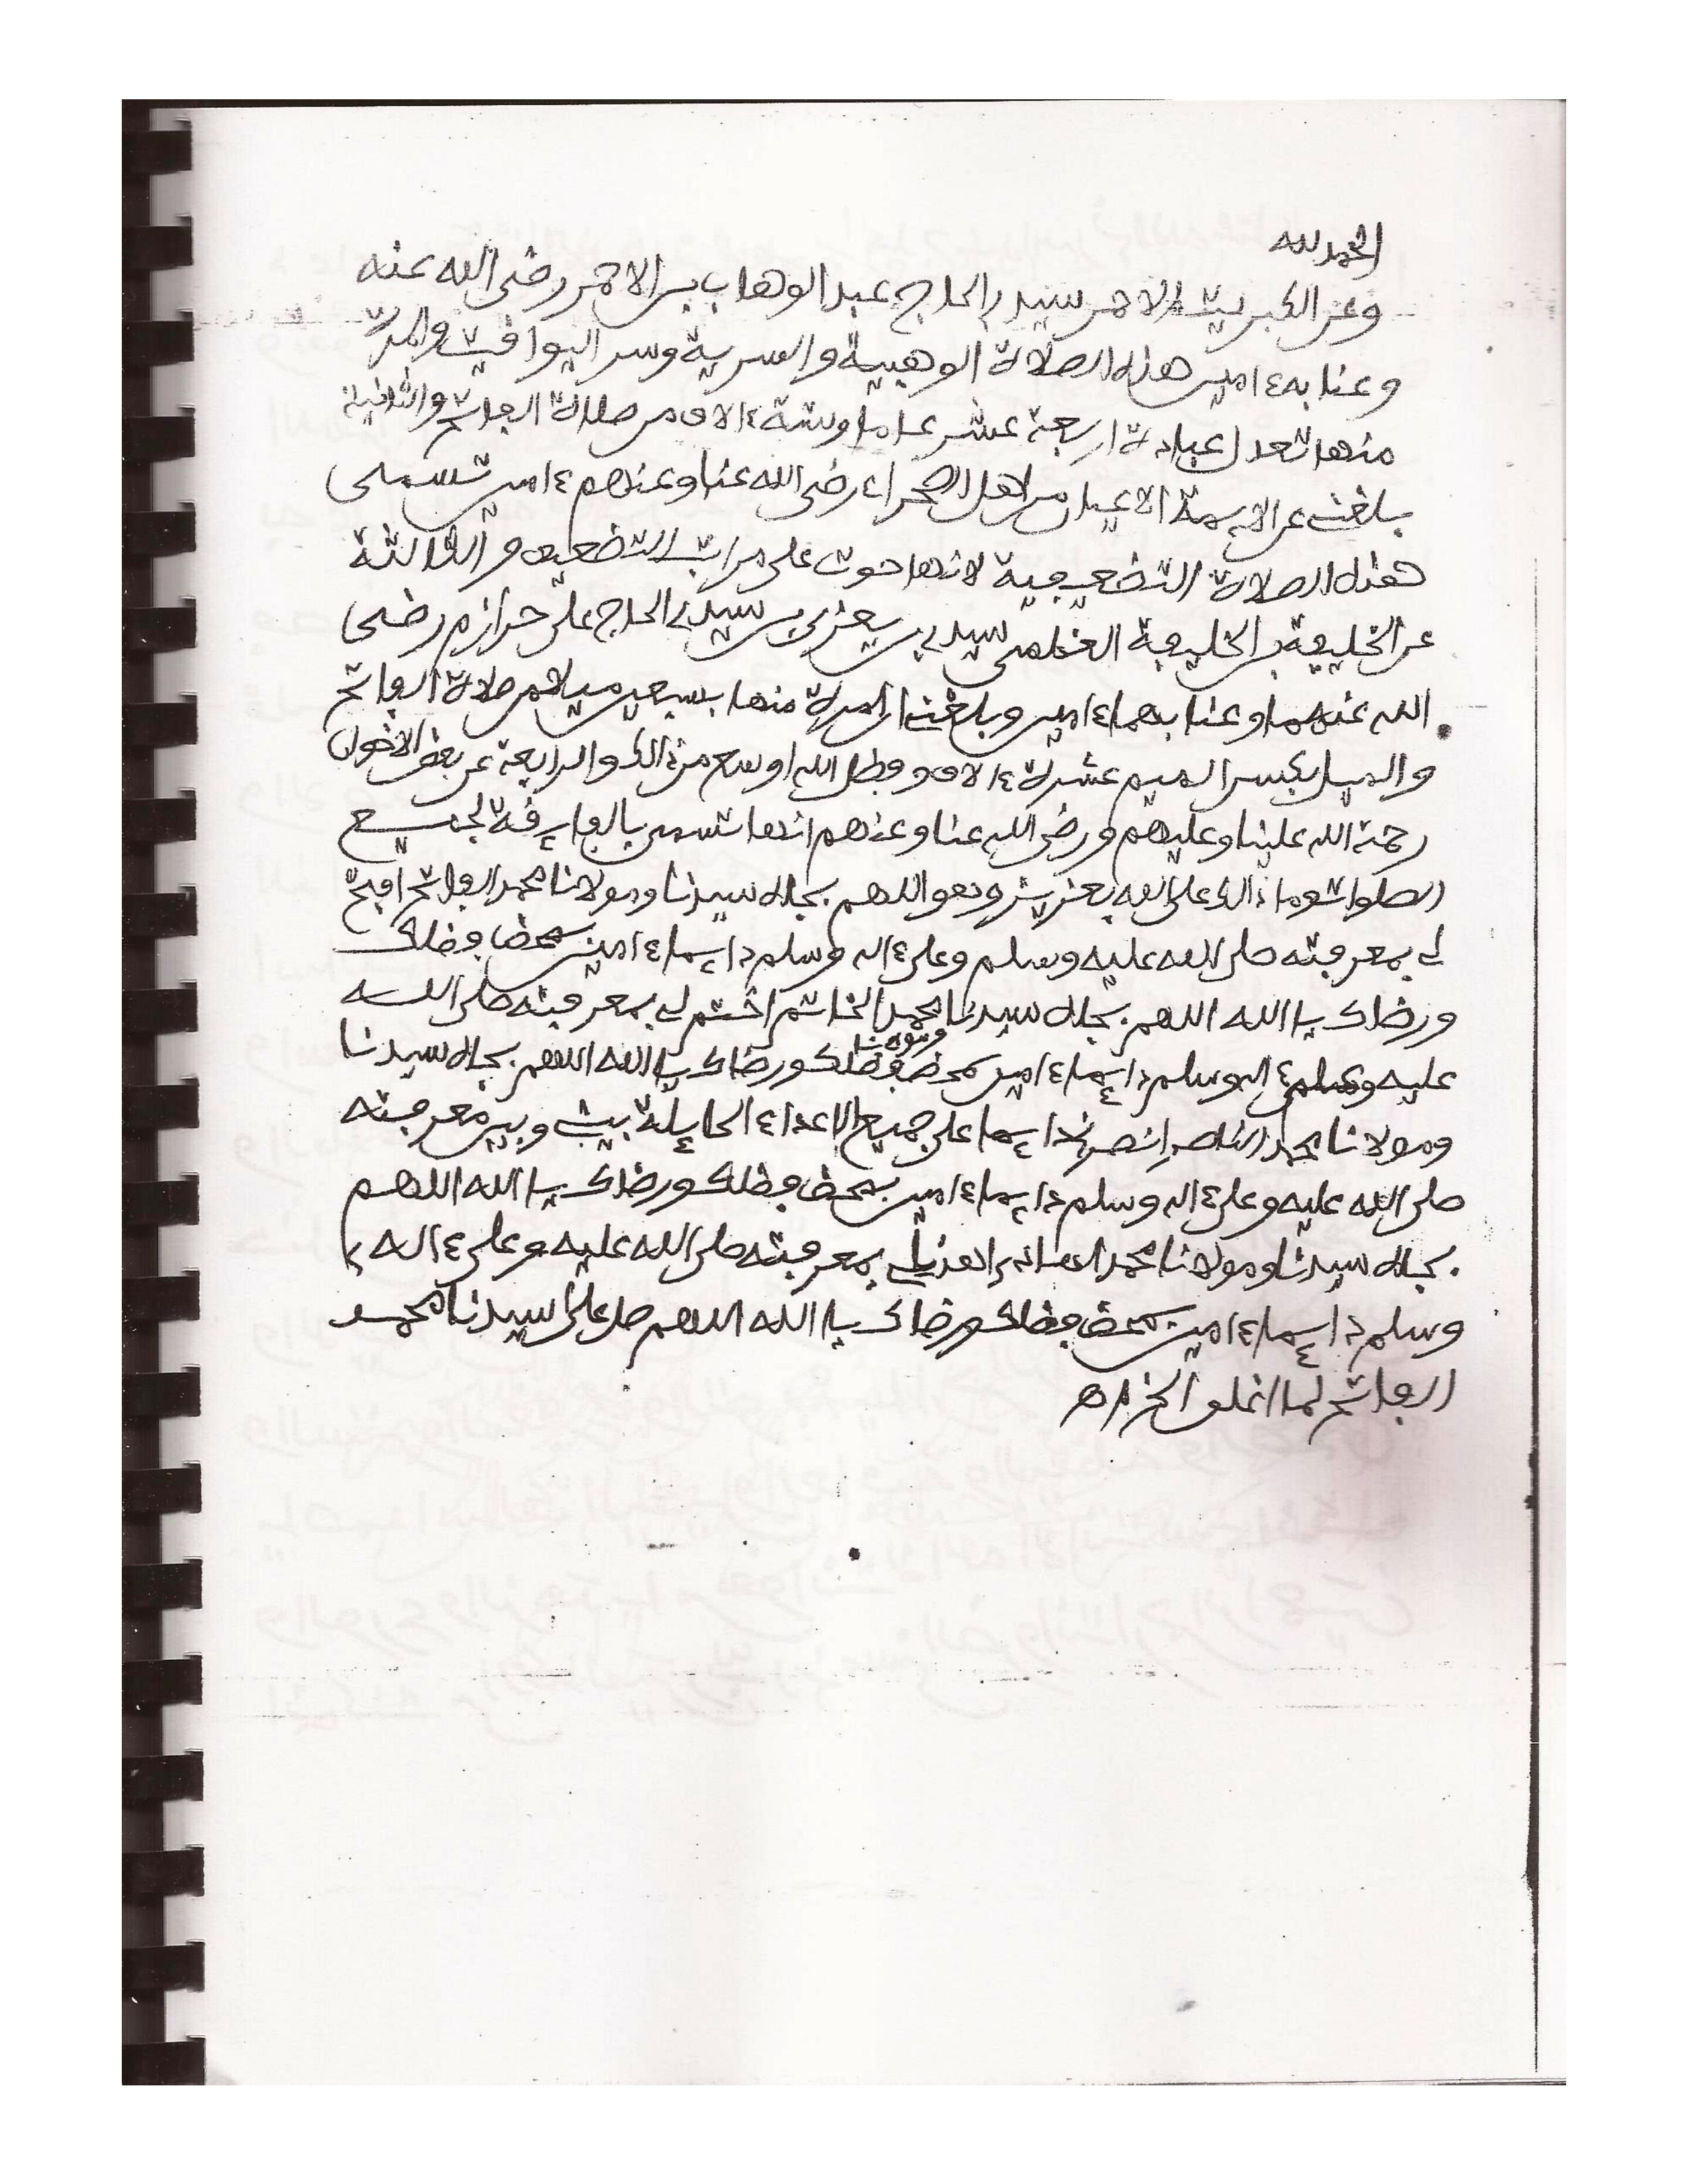 الحمد لله
وعن الكبريت الاحمر سيدي الحاج عبد الوهاب بن الاحمر رضى الله عنه
وعنا به ءامين هذه الصلاة الوهبية والسرية وسر اليواقيت والمرة
منها تعدل عبادة اربعة عشر عاما وستة ءالاف من صلاة الفاتح والثانية
بلغت عن الايمة الاعيان من اهل الصحراء رضى الله عنا وعنهم ءامين تسمى
هذه الصلاة التضعيفية لانها حوت على مراتب التضعيف والثالثة
عن الخليفة بن الخليفة العظمى سيدي بن يعزى بن سيدي الحاج على حرازم رضى
الله عنهما وعنا بهما ءامين وبلغت ان المرة منها بسبعين ميلا من صلاة الفاتح
والميل بكسر الميم عشرة ءالاف وفضل الله اوسع من ذالك والرابعة عن بعض الاخوان
رحمة الله علينا وعليهم ورضى الله عنا وعنهم انها تسمى بالفايقة لجميع
الصلوات وما ذالك على الله بعزيز وهو اللهم بجاه سيدنا ومولانا محمد الفاتح افتح
لي بمعرفته صلى الله عليه وسلم وعلى ءاله وسلم دايما ءامين بمحض فضلك
ورضاك يا الله اللهم بجاه سيدنا ومولانا محمد الخاتم اختم لي بمعرفته صلى الله
عليه وعلى ءاله وسلم دايما ءامين بمحض فضلك ورضاك يا الله اللهم بجاه سيدنا
ومولانا محمد الناصر انصرني دايما على جميع الاعداء الحايلة بيني وبين معرفته
صلى الله عليه وعلى ءاله وسلم دايما ءامين بمحض فضلك ورضاك يا الله اللهم
بجاه سيدنا ومولانا محمد الهادي اهدني لي بمعرفته صلى الله عليه وعلى ءاله
وسلم دايما ءامين بمحض فضلك ورضاك يا الله اللهم صل على سيدنا محمد
الفاتح لما اغلق الخ اه